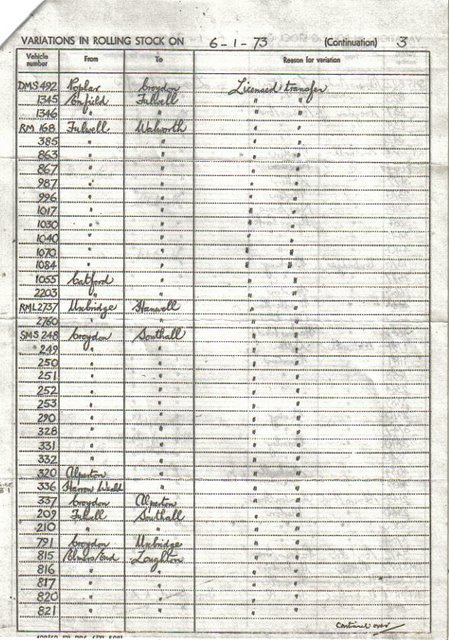 VARIATIONS IN ROLLING STOCK ON 6-1-73 (Continuation) 3
Vehicle number From To Reason for variation
DMS 492 Poplar Croydon Licensed transfer
1345 Enfield Fulwell " "
1346 " " " "
RM 168 Fulwell Walworth " "
385 " " " "
863 " " " "
867 " " " "
987 " " " "
996 " " " "
1017 " " " "
1030 " " " "
1040 " " " "
1070 " " " "
1084 " " " "
1055 Catford " " "
2203 " " " "
RML 2737 Uxbridge Hanwell " "
2760 " " " "
SMS 248 Croydon Southall " "
" 249 " " " "
250 " " " "
251 " " " "
252 " " " "
253 " " " "
290 " " " "
328 " " " "
331 " " " "
332 " " " "
320 Alperton " " "
336 Harrow Weald " " "
337 Croydon Alperton " "
209 Fulwell Southall " "
210 " " " "
791 Croydon Uxbridge " "
815 Elmers End Loughton " "
816 " " " "
817 " " " "
820 " " " "
821 " " " "
Continued over